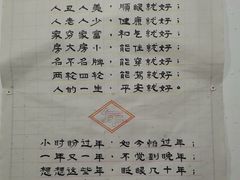 人丑人美，顺眼就好；
人老人少，健康就好；
人穷人富，和气就好；
房大房小，能住就好；
名不名牌，能穿就好；
两轮四轮，能驾就好；
人的一生，平安就好。
小时盼过年，如今怕过年；
一年又一年，不觉到晚年；
想想这些年，眨眼几十年；